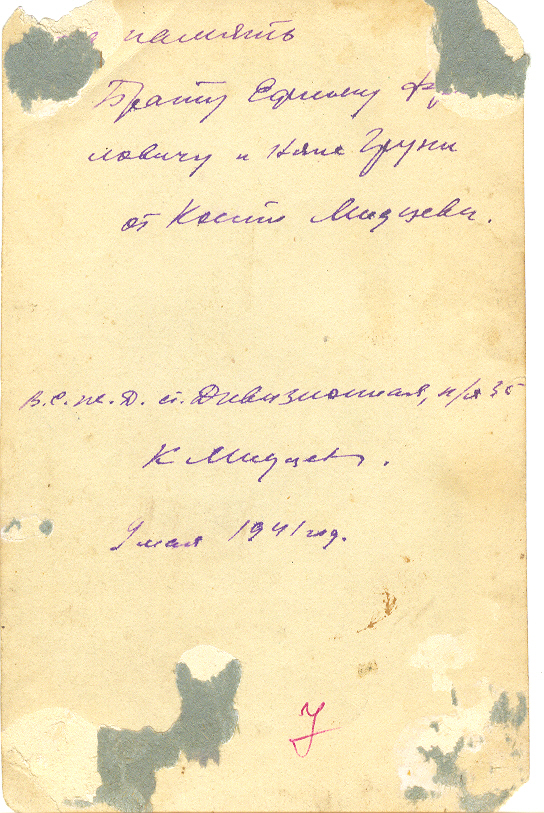 память
Брату Ефиму Фр
ловичу и няне Груни
от Кости Мидцева.
В.С.ж.Д. ст. Дивизионная, п/я 35
К Мидцев.
9 мая 1941 год.
У